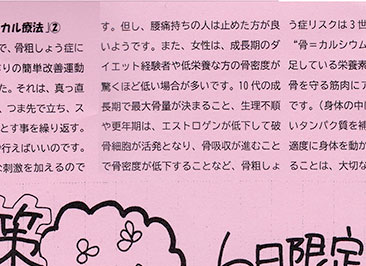 カル療法」②
で、骨粗しょう症に
りの簡単改善運動
た。それは、真っ直
、つま先で立ち、ス
とす事を繰り返す。
行えばいいのです。
な刺激を加えるので
す。但し、腰痛持ちの人は止めた方が良
いようです。また、女性は、成長期のダ
イエット経験者や低栄養な方の骨密度が
驚くほど低い場合が多いです。10代の成
長期で最大骨量が決まること、生理不順
や更年期は、エストロゲンが低下して破
骨細胞が活発となり、骨吸収が進むこと
で骨密度が低下することなど、骨粗しょ
う症リスクは3世
"骨＝カルシウム
足している栄養素
骨を守る筋肉にア
です。（身体の中
いタンパク質を補
適度に身体を動か
ることは、大切な
策
6日限定